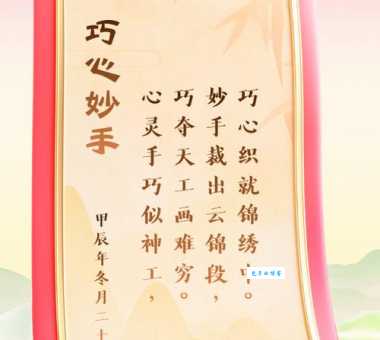 巧心妙手
甲辰年冬月二十
心灵手巧似神工，
巧夺天工画难穷。
妙手裁出云锦段，
巧心织就锦绣。